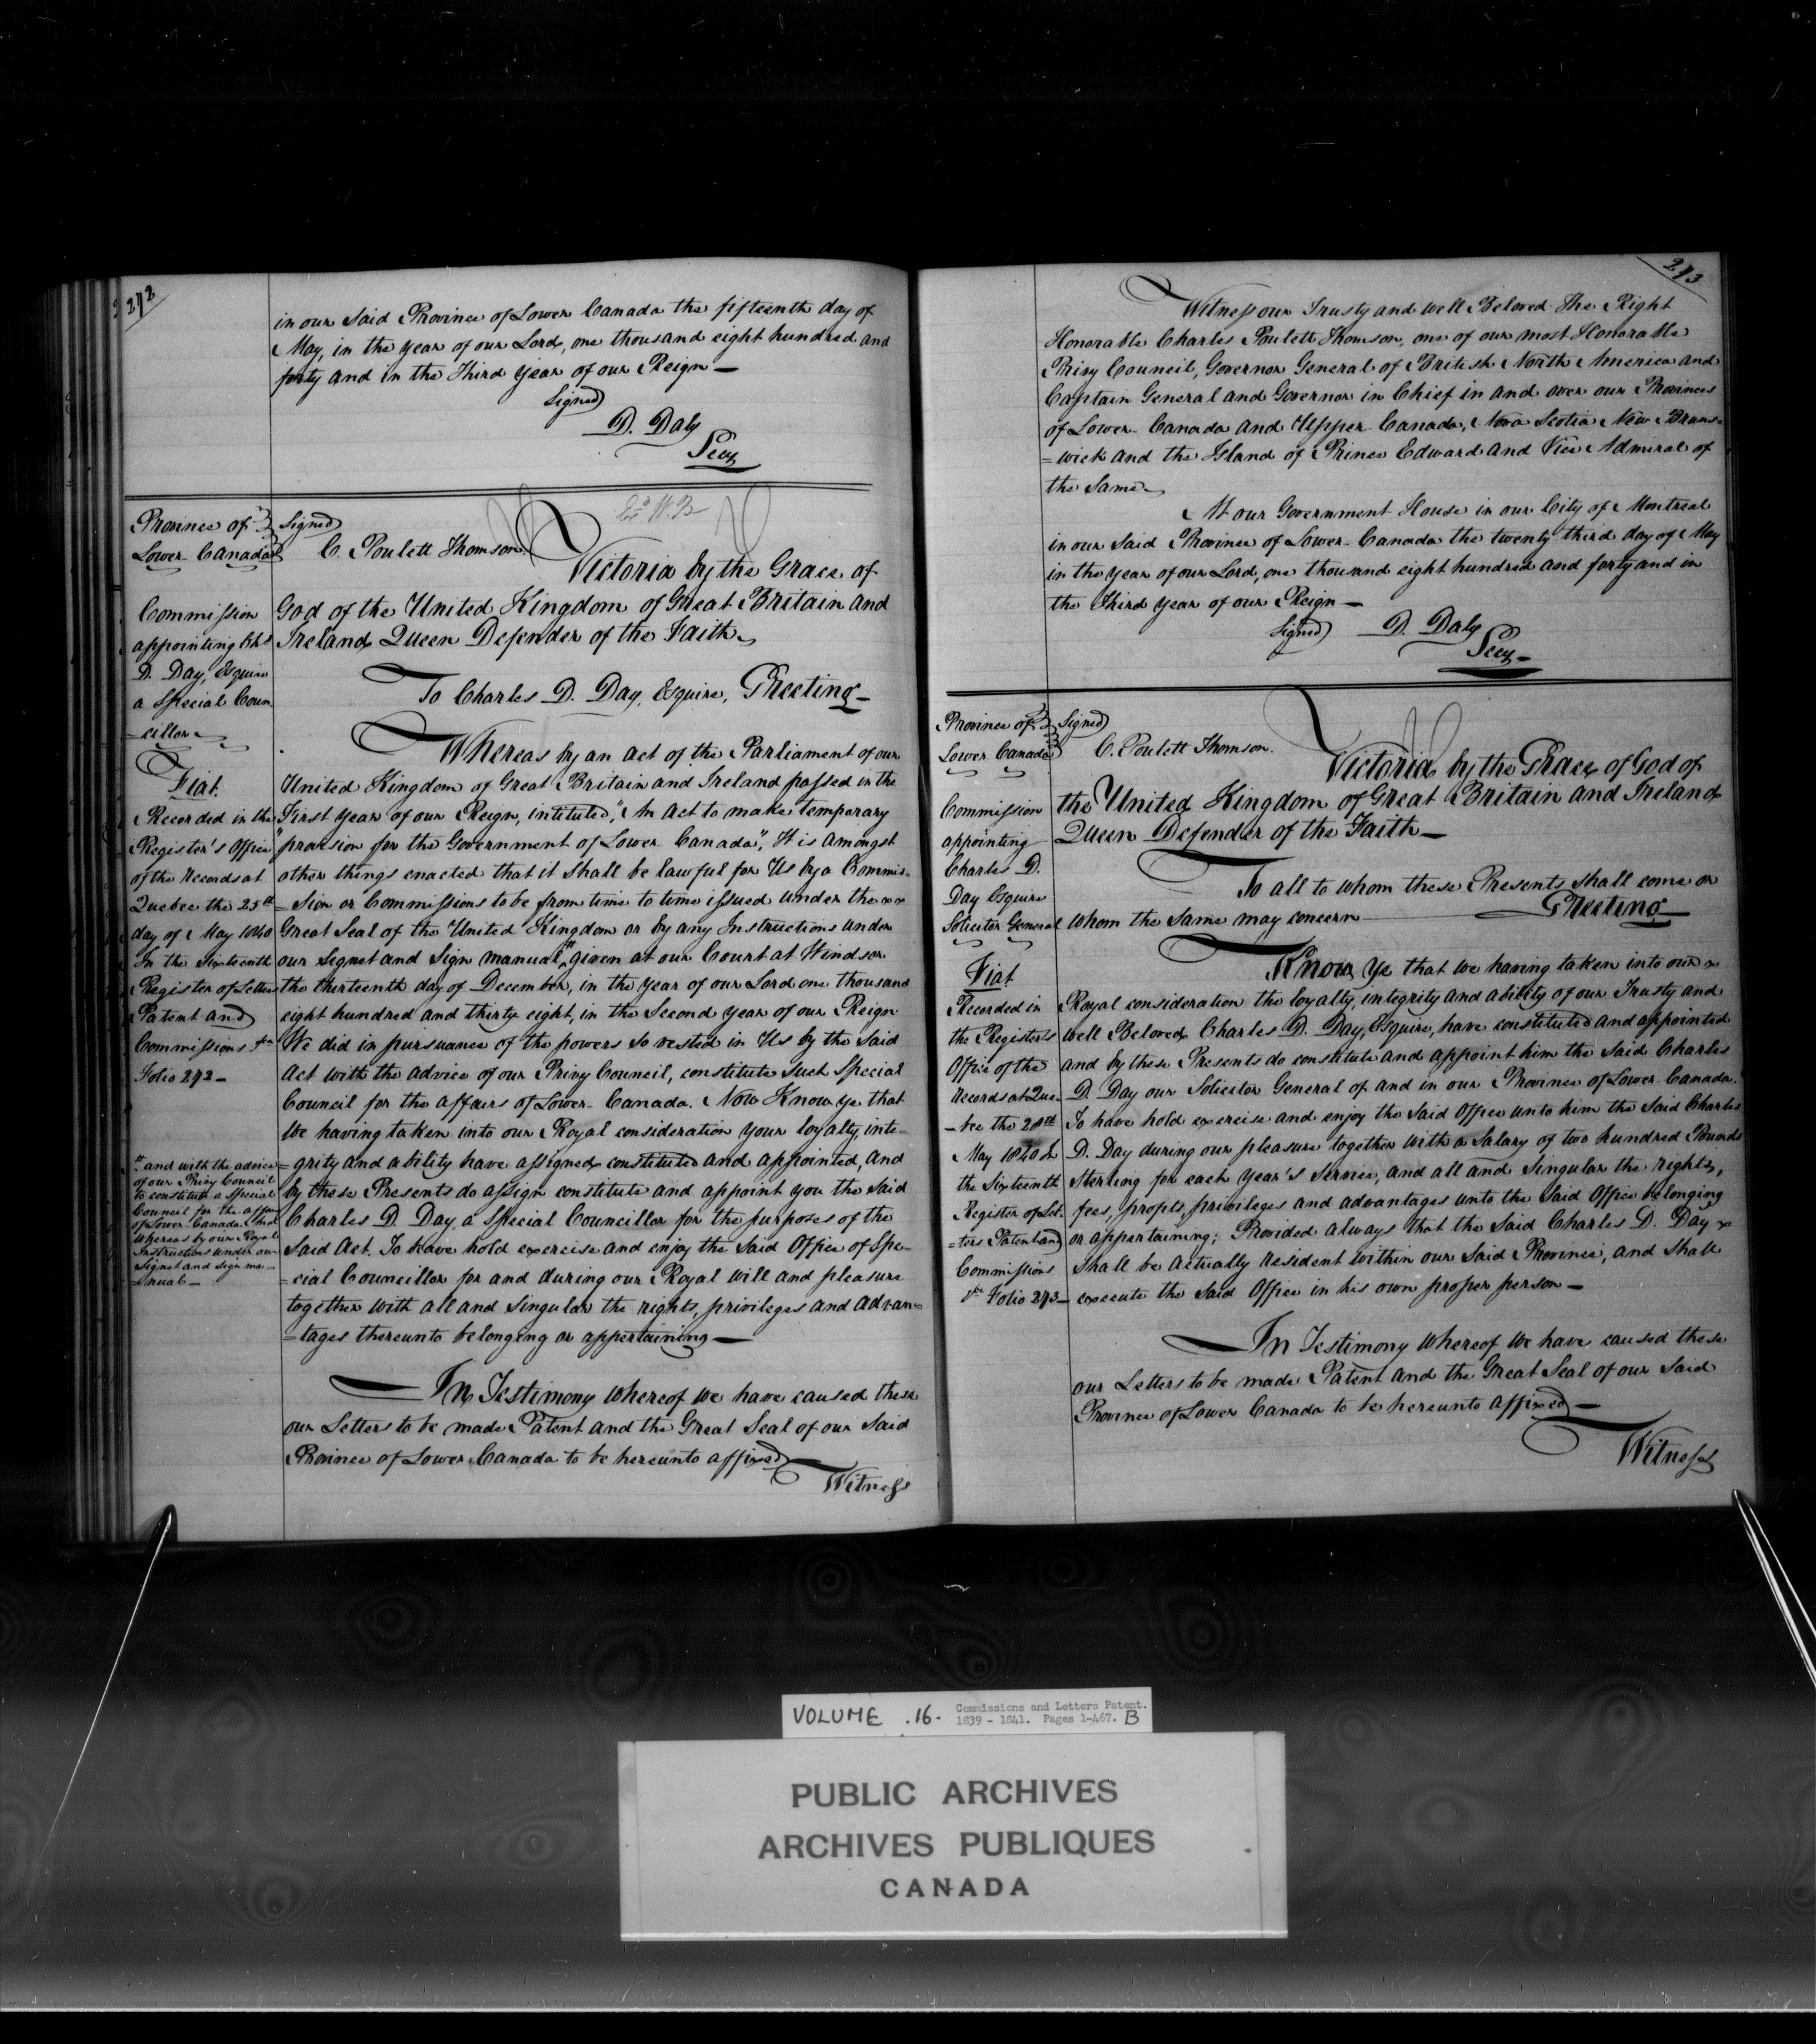 272
in our said Province of Lower Canada the fifteenth day of
May, in the year of our Lord, one thousand eight hundred and
forty and in the Third year of our Reign —
Signed
D. Daly
Secy
Province of
Lower Canada
Signed
C. Poulett Thomson
Victoria by the Grace of
God of the United Kingdom of Great Britain and
Ireland Queen Defender of the Faith
To Charles D. Day, Esquire, Greeting —
Commission
appointing Chs
D. Day, Esquire
a Special Coun
cillor
Fiat.
Recorded in the
Register's Office
of the Records at
Quebec the 25th
day of May 1840
In the Sixteenth
Register of Letters
Patent and
Commissions &ca
Folio 272 —
Whereas by an act of the Parliament of our
United Kingdom of Great Britain and Ireland passed in the
First year of our Reign, intituled, "An Act to make temporary
"provision for the Government of Lower Canada", It is amongst
other things enacted that it shall be lawful for Us by a Commis-
=sion or Commissions to be from time to time issued under the
Great Seal of the United Kingdom or by any Instructions under
our Signet and Sign manual, # given at our Court at Windsor
the thirteenth day of December, in the year of our Lord one thousand
eight hundred and thirty eight, in the Second year of our Reign
We did in pursuance of the powers so vested in Us by the said
Act with the advice of our Privy Council, constitute such Special
Council for the affairs of Lower Canada. Now Know ye that
We having taken into our Royal consideration your loyalty, inte-
=grity and ability have assigned constituted and appointed, and
by these Presents do assign constitute and appoint you the said
Charles D. Day, a Special Councillor for the purposes of the
said Act. To have hold exercise and enjoy the said Office of Spe-
=cial Councillor for and during our Royal will and pleasure
together with all and singular the rights, privileges and advan-
=tages thereunto belonging or appertaining —
# and with the advice
of our Privy Council
to constitute a Special
Council for the affairs
of Lower Canada. And
Whereas by our Royal
Instructions under our
Signet and Sign ma-
=nual —
In Testimony whereof we have caused these
our Letters to be made Patent and the Great Seal of our said
Province of Lower Canada to be hereunto affixed
Witness
273
Witness our Trusty and well Beloved The Right
Honorable Charles Poulett Thomson, one of our most Honorable
Privy Council, Governor General of British North America and
Captain General and Governor in Chief in and over our Provinces
of Lower Canada and Upper Canada, Nova Scotia New Bruns=
=wick and the Island of Prince Edward and Vice Admiral of
the same
At our Government House in our City of Montreal
in our said Province of Lower Canada the twenty third day of May
in the year of our Lord, one thousand eight hundred and forty and in
the Third year of our Reign —
Signed D. Daly
Secy —
Province of
Lower Canada
Signed
C. Poulett Thomson.
Victoria by the Grace of God of
the United Kingdom of Great Britain and Ireland
Queen Defender of the Faith —
To all to whom these Presents shall come or
whom the same may concern Greeting
Commission
appointing
Charles D.
Day Esquire
Solicitor General
Fiat
Recorded in
the Register's
Office of the
Records at Que-
-bec the 28th
May 1840 In
the Sixteenth
Register of Let-
=ters Patent and
Commissions
&ca Folio 273 —
Know Ye that we having taken into our
Royal consideration the loyalty, integrity and ability of our Trusty and
well Beloved Charles D. Day, Esquire, have constituted and appointed
and by these Presents do constitute and appoint him the said Charles
D. Day our Solicitor General of and in our Province of Lower Canada.
To have hold exercise and enjoy the said Office unto him the said Charles
D. Day during our pleasure together with a Salary of two hundred Pounds
Sterling for each year's service, and all and singular the rights,
fees, profits, privileges and advantages unto the said Office belonging
or appertaining; Provided always that the said Charles D. Day
shall be actually resident within our said Province, and shall
execute the said Office in his own proper person —
In Testimony whereof We have caused these
our Letters to be made Patent and the Great Seal of our said
Province of Lower Canada to be hereunto affixed —
Witness
VOLUME .16. Commissions and Letters Patent.
1839 - 1841. Pages 1-467. B
PUBLIC ARCHIVES
ARCHIVES PUBLIQUES
CANADA